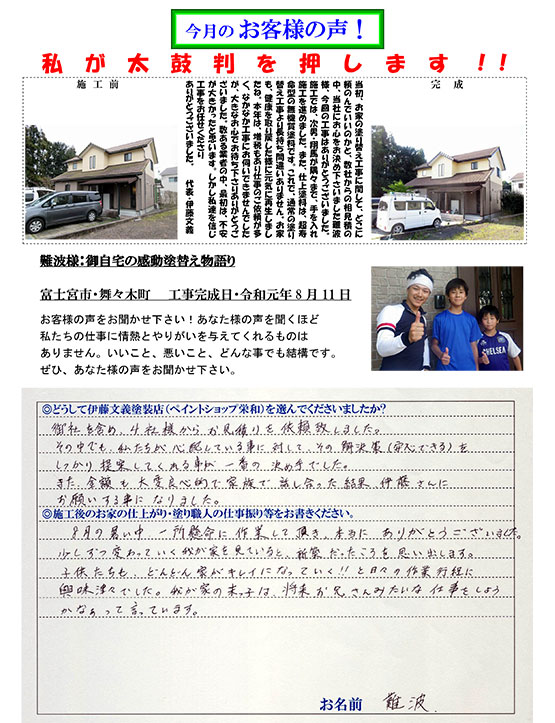 今月の お客様の声！
私が太鼓判を押します!!
施工前
当初、お家の塗り替え工事に関して、どこに
頼のんでいいのかと、数社からの相見積の
中、当社にお心をお決め下さいました難波
様、今回の工事はありがとうございました。
施工では、次男・翔馬が隅々まで、手を入れ
施工を進めました。また、仕上塗料は、超寿
命型の無機質塗料です。これで、通常の塗り
替え工事より長持ち間違いありません。お家
も、健康を取り戻した様に元気に再生しまし
たね。本年は、増税もあり仕事のご依頼が多
く、なかなか工事にお伺いできませんでした
が、大きなお心でお待ち下さりありがとうご
ざいました。数ある業者の中、最初は、不安
が大きかったと思います。しかし私達を信じ
工事をお任せくださり
ありがとうございました。 代表・伊藤文義
完成
難波様：御自宅の感動塗替え物語り
富士宮市・舞々木町 工事完成日・令和元年8月11日
お客様の声をお聞かせ下さい！あなた様の声を聞くほど
私たちの仕事に情熱とやりがいを与えてくれるものは
ありません。いいこと、悪いこと、どんな事でも結構です。
ぜひ、あなた様の声をお聞かせ下さい。
CHELSEA
◎どうして伊藤文義塗装店（ペイントショップ栄和）を選んでくださいましたか？
御社を含め、4社様からお見積りを依頼致しました。
その中でも、私たちが心配している事に対して、その解決策（安心できる）を
しっかり提案してくれる事が一番の決め手でした。
また、金額も大変良心的で家族で話し合った結果、伊藤さんに
お願いする事になりました。
◎施工後のお家の仕上がり・塗り職人の仕事振り等をお書きください。
8月の暑い中、一所懸命に作業して頂き、本当にありがとうございました。
少しずつ変わっていく我が家を見ていると、新築だったころを思い出します。
子供たちも、どんどん家がキレイになっていく!!と日々の作業行程に
興味津々でした。我が家の末っ子は、将来お兄さんみたいな仕事をしよう
かなぁって言っています。
お名前 難波.